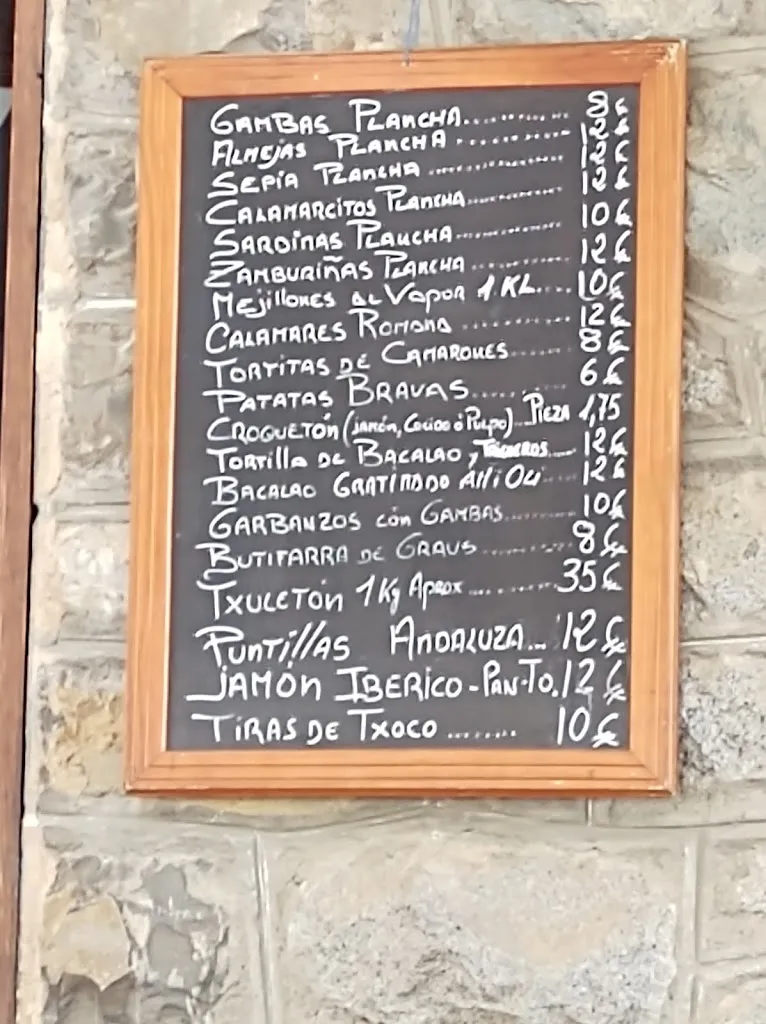 GAMBAS PLANCHA........... 8€
ALMEJAS PLANCHA........... 12€
SEPIA PLANCHA........... 12€
CALAMARCITOS PLANCHA........... 12€
SARDINAS PLANCHA........... 10€
ZAMBURIÑAS PLANCHA........... 12€
MEJILLONES AL VAPOR 1 KL.... 10€
CALAMARES ROMANA........... 12€
TORTITAS DE CAMARONES....... 8€
PATATAS BRAVAS........ 6€
CROQUETÓN (JAMÓN, COCIDO ó PULPO)...PIEZA 1,75
TORTILLA DE BACALAO, .... 12€
BACALAO GRATINADO ALLI OLI..... 12€
GARBANZOS CÓN GAMBAS......... 10€
BUTIFARRA DE GRAUS.......... 8€
TXULETÓN 1 Kg APROX.......... 35€
PUNTILLAS ANDALUZA... 12€
JAMÓN IBERICO-PAN-TO. 12€
TIRAS DE TXOCO........ 10€